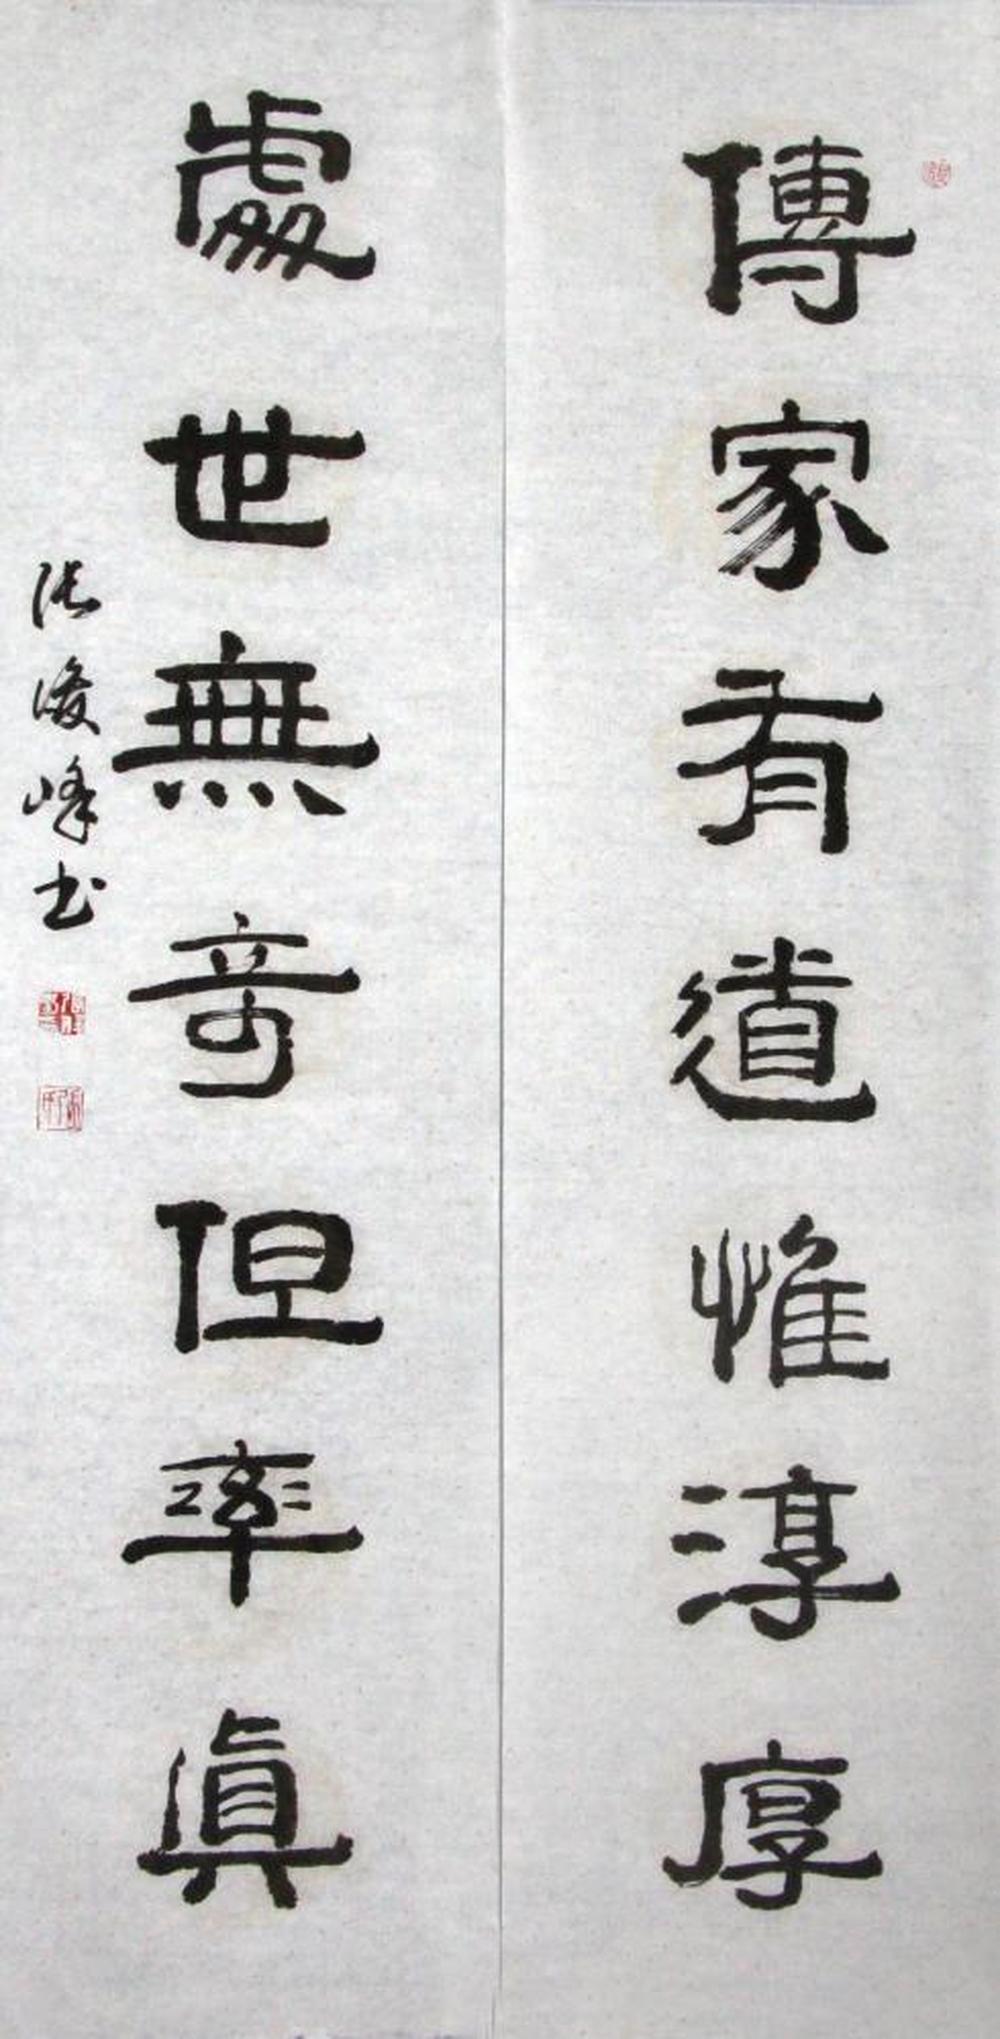 傳家有道惟淳厚
處世無奇但率真
张俊峰书